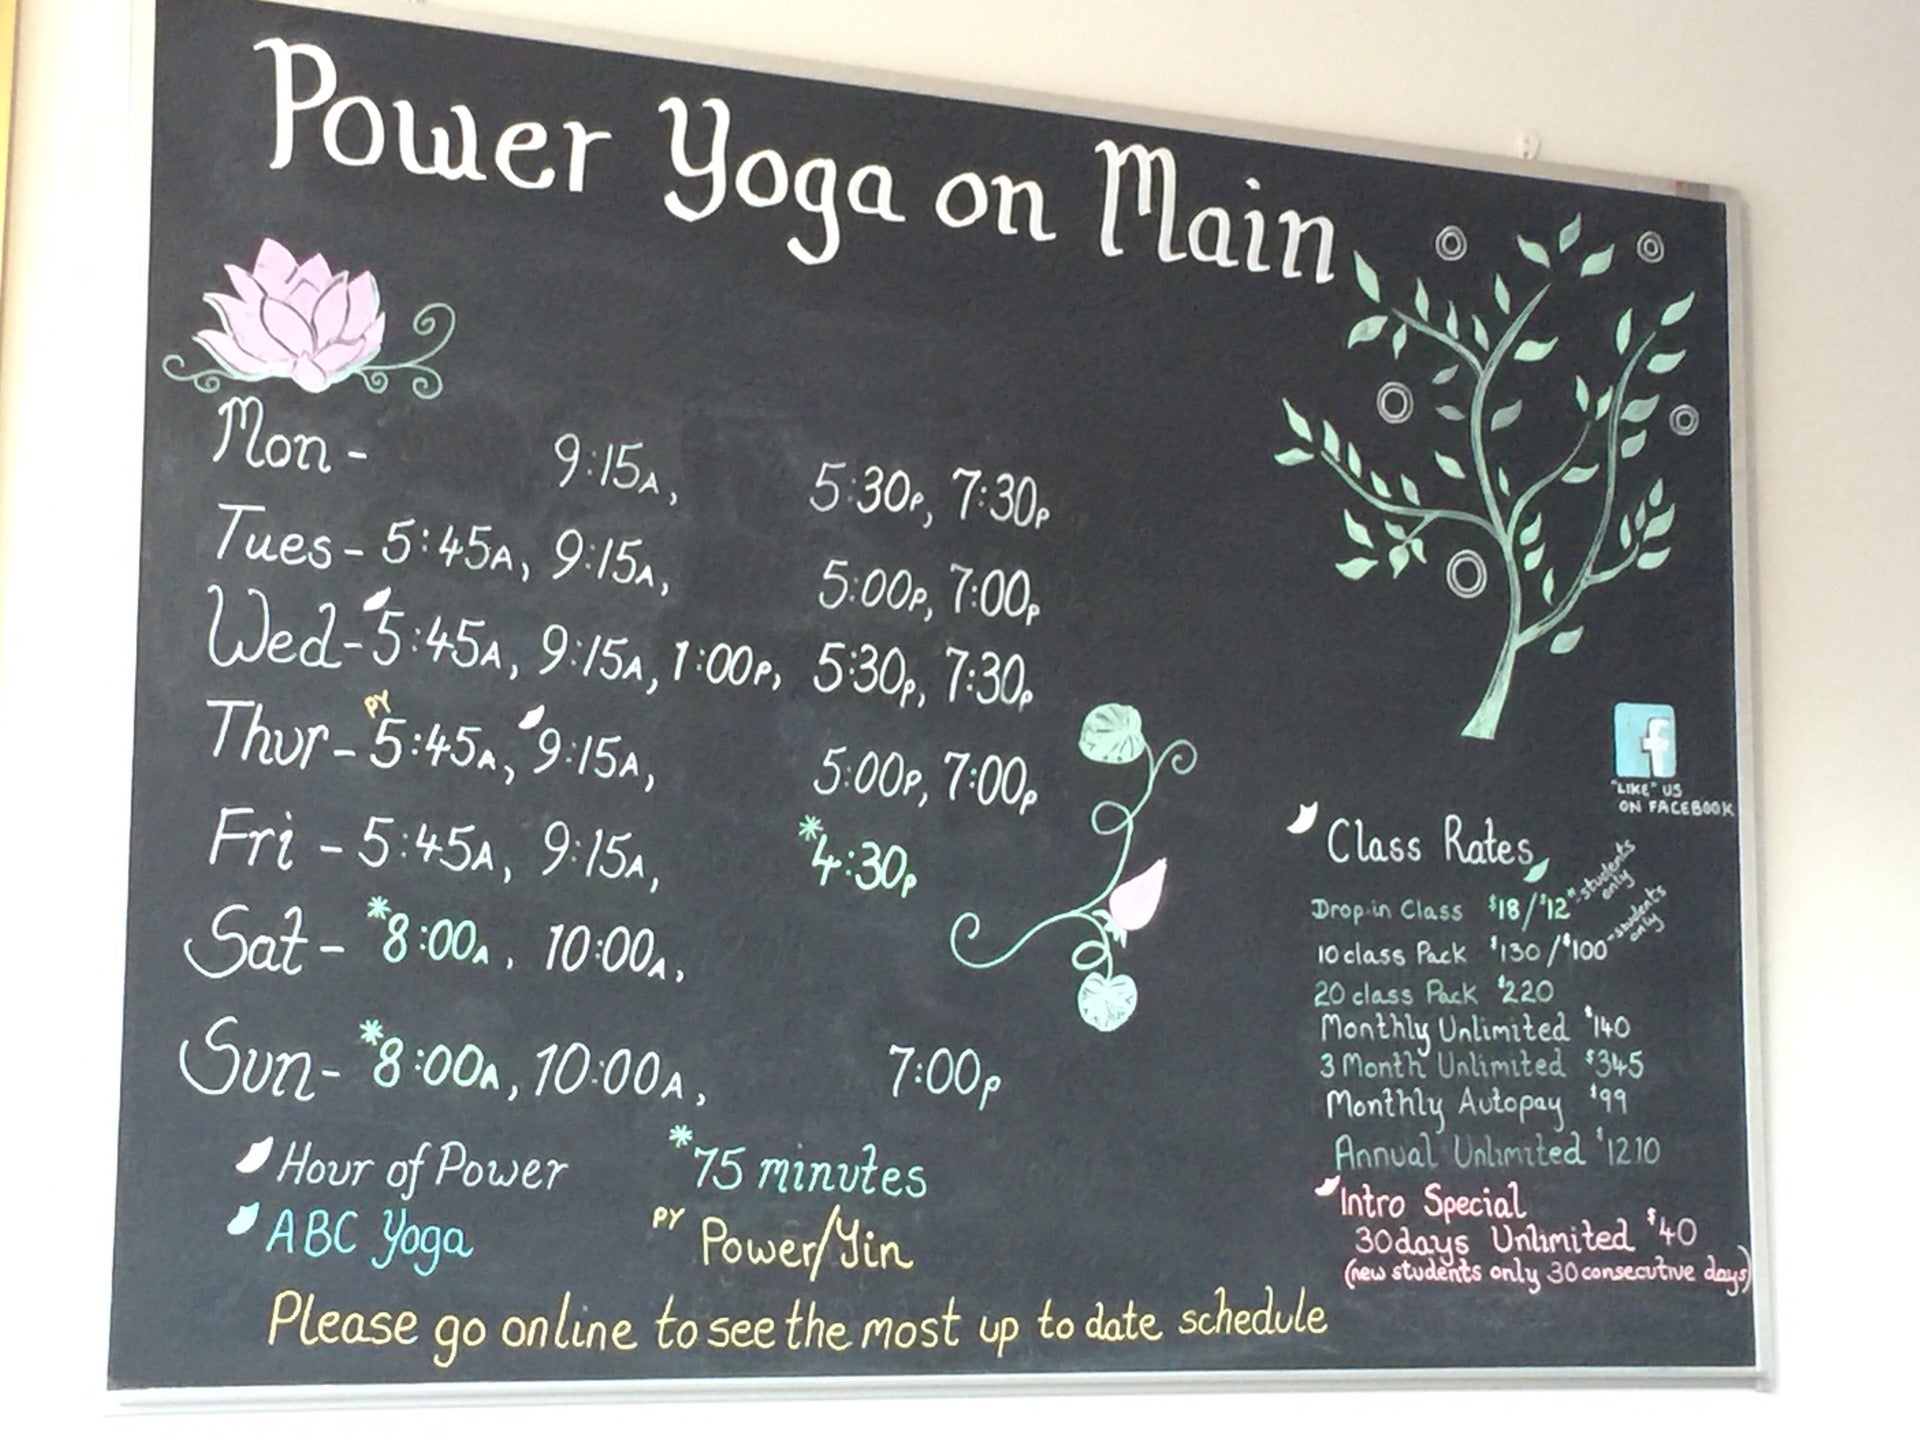 Power Yoga on Main
Mon - 9:15A, 5:30P, 7:30P
Tues - 5:45A, 9:15A, 5:00P, 7:00P
Wed - 5:45A, 9:15A, 1:00P, 5:30P, 7:30P
Thur - PY 5:45A, 9:15A, 5:00P, 7:00P
Fri - 5:45A, 9:15A, *4:30P
Sat - *8:00A, 10:00A,
Sun - *8:00A, 10:00A, 7:00P
Hour of Power *75 minutes
ABC Yoga PY Power/Yin
Please go online to see the most up to date schedule
f
"LIKE" US
ON FACEBOOK
Class Rates
Drop-in Class $18/$12 - students only
10 class Pack $130/$100 - students only
20 class Pack $220
Monthly Unlimited $140
3 Month Unlimited $345
Monthly Autopay $99
Annual Unlimited $1210
Intro Special
30 days Unlimited $40
(new students only 30 consecutive days)